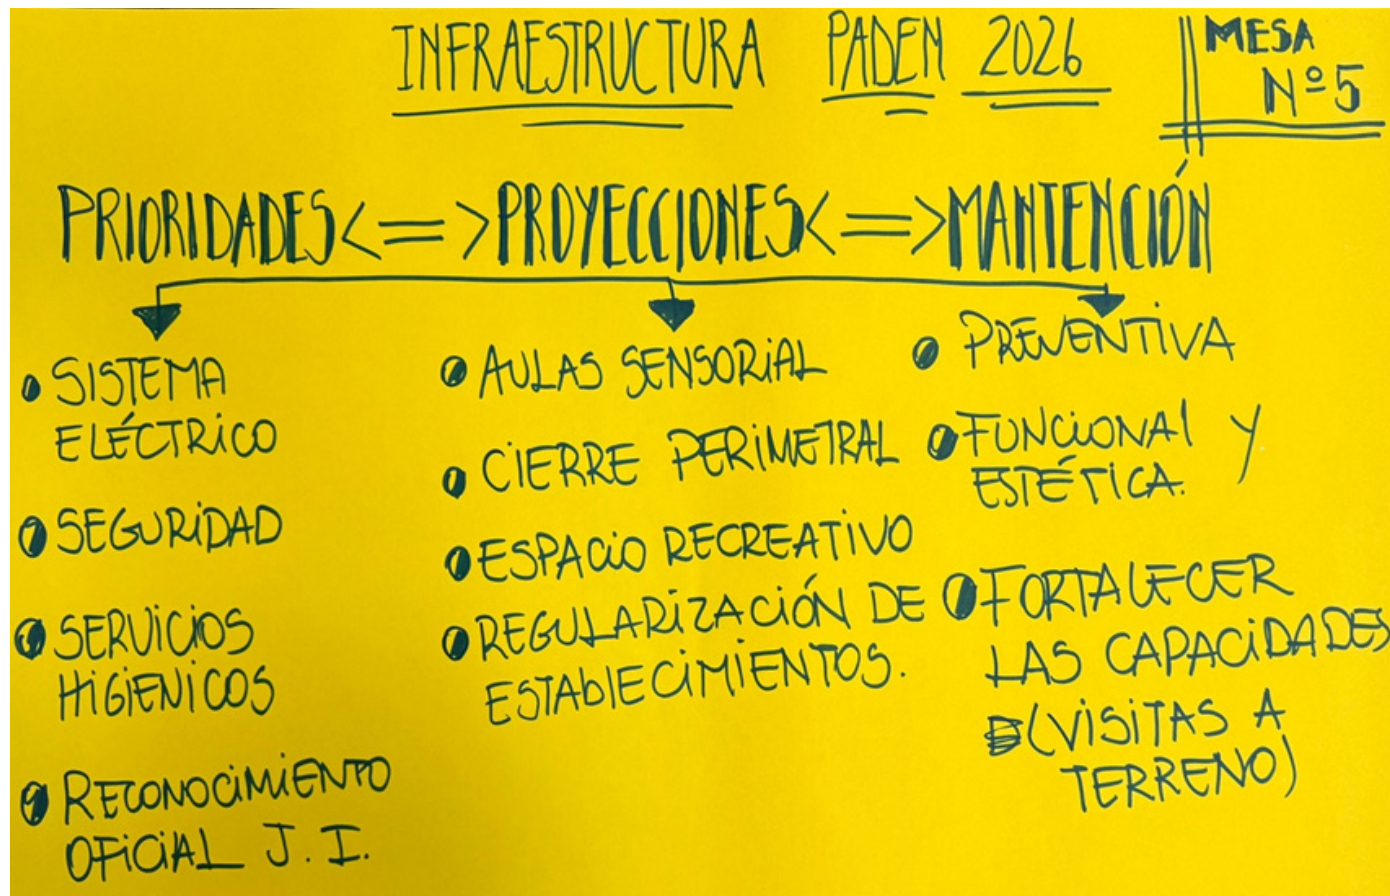 INFRAESTRUCTURA PADEM 2026
MESA
Nº5
PRIORIDADES<=>PROYECCIONES<=>MANTENCIÓN
• SISTEMA
ELÉCTRICO
• SEGURIDAD
• SERVICIOS
HIGIENICOS
• RECONOCIMIENTO
OFICIAL J. I.
• AULAS SENSORIAL
• CIERRE PERIMETRAL
• ESPACIO RECREATIVO
• REGULARIZACIÓN DE
ESTABLECIMIENTOS.
• PREVENTIVA
• FUNCIONAL Y
ESTÉTICA.
• FORTALECER
LAS CAPACIDADES
(VISITAS A
TERRENO)